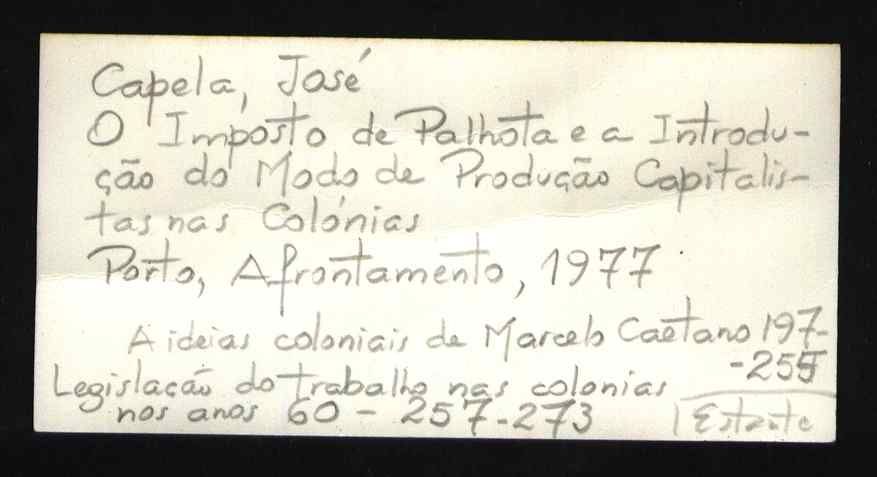 Capela, José
O Imposto de Palhota e a Introdu-
ção do Modo de Produção Capitalis-
tas nas Colónias
Porto, Afrontamento, 1977
A ideias coloniais de Marcelo Caetano 197-
-255
Legislação do trabalho nas colonias
nos anos 60 - 257-273
Estante